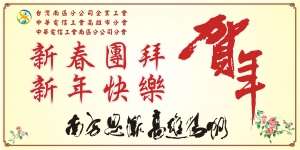 台灣南區分公司企業工會
中華電信工會高雄市分會
中華電信工會南區分公司分會
新春團拜
新年快樂
賀年